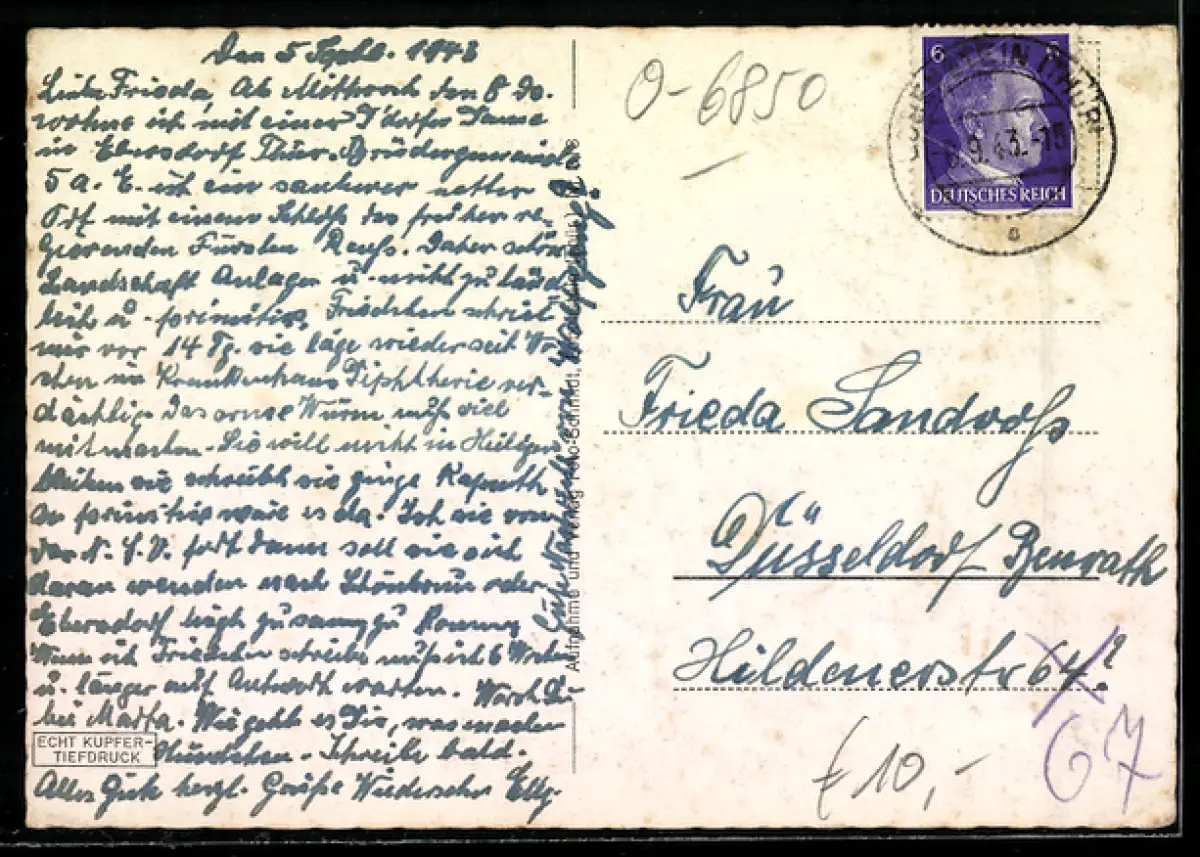 Den 5 Sept. 1943
Liebe Frieda, Ab Mittwoch den 8 ds.
wohne ich mit einer D'dorfer Dame
in Ebersdorf Thür. Brüdergemeinde
5a. E. ist ein sauberer netter
Ort mit einem Schloß des früher re-
gierenden Fürsten Reuß. Daher schöne
Landschaft Anlagen u. nicht zu länd-
lich u. primitiv. Friedchen schrieb
mir vor 14 Tg. sie läge wieder seit Wo-
chen im Krankenhaus Diphtherie ver-
dächtig. Das arme Wurm muß viel
mitmachen. Sie will nicht in
bleiben sie schreibt sie ginge kaputt
so primitiv wäre es da. Ist sie von
der N.S.V. fort dann soll sie sich
daran wenden nach Schönbrunn oder
Ebersdorf liegt zusammen
Wenn ich Friedchen schreibe muß ich 6 Wochen
u. länger auf Antwort warten. Warst Du
bei Marta. Wie geht es Dir, was machen
Schreibe bald.
Alles Gute herzl. Grüße Wiedersehn Elly.
ECHT KUPFER-
TIEFDRUCK
Aufnahme und Verlag Foto-Schmidt,
O-6850
6 6
DEUTSCHES REICH
9.43.-15
Frau
Frieda Sandvoß
Düsseldorf Benrath
Hildenerstr 64?
67
€ 10,-